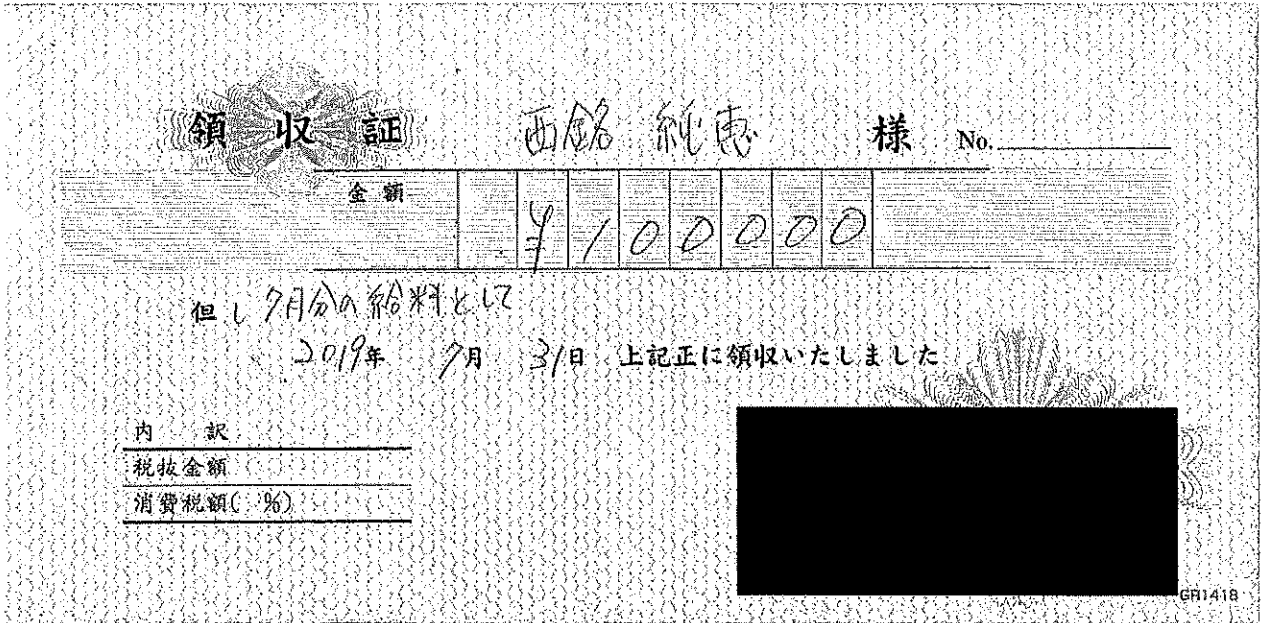 領収証 西銘 純恵 様 No.
金額 ¥100000
但し 7月分の給料として
2019年 7月 31日 上記正に領収いたしました
内 訳
税抜金額
消費税額( %)
GR1418